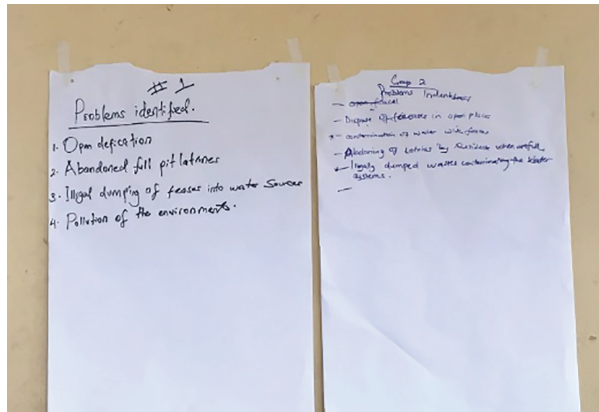 # 1
Problems identified.
1. Open defication
2. Abandoned full pit latrines
3. Illigal dumping of feases into water Sources
4. Pollution of the environments.
Group 2
Problems
- Dispose of feaceses in open places
- contamination of water with feaces
- Abadoning of latrines by Residents when are full
- Illegaly dumped wastes contaminating the Water
systems.
-